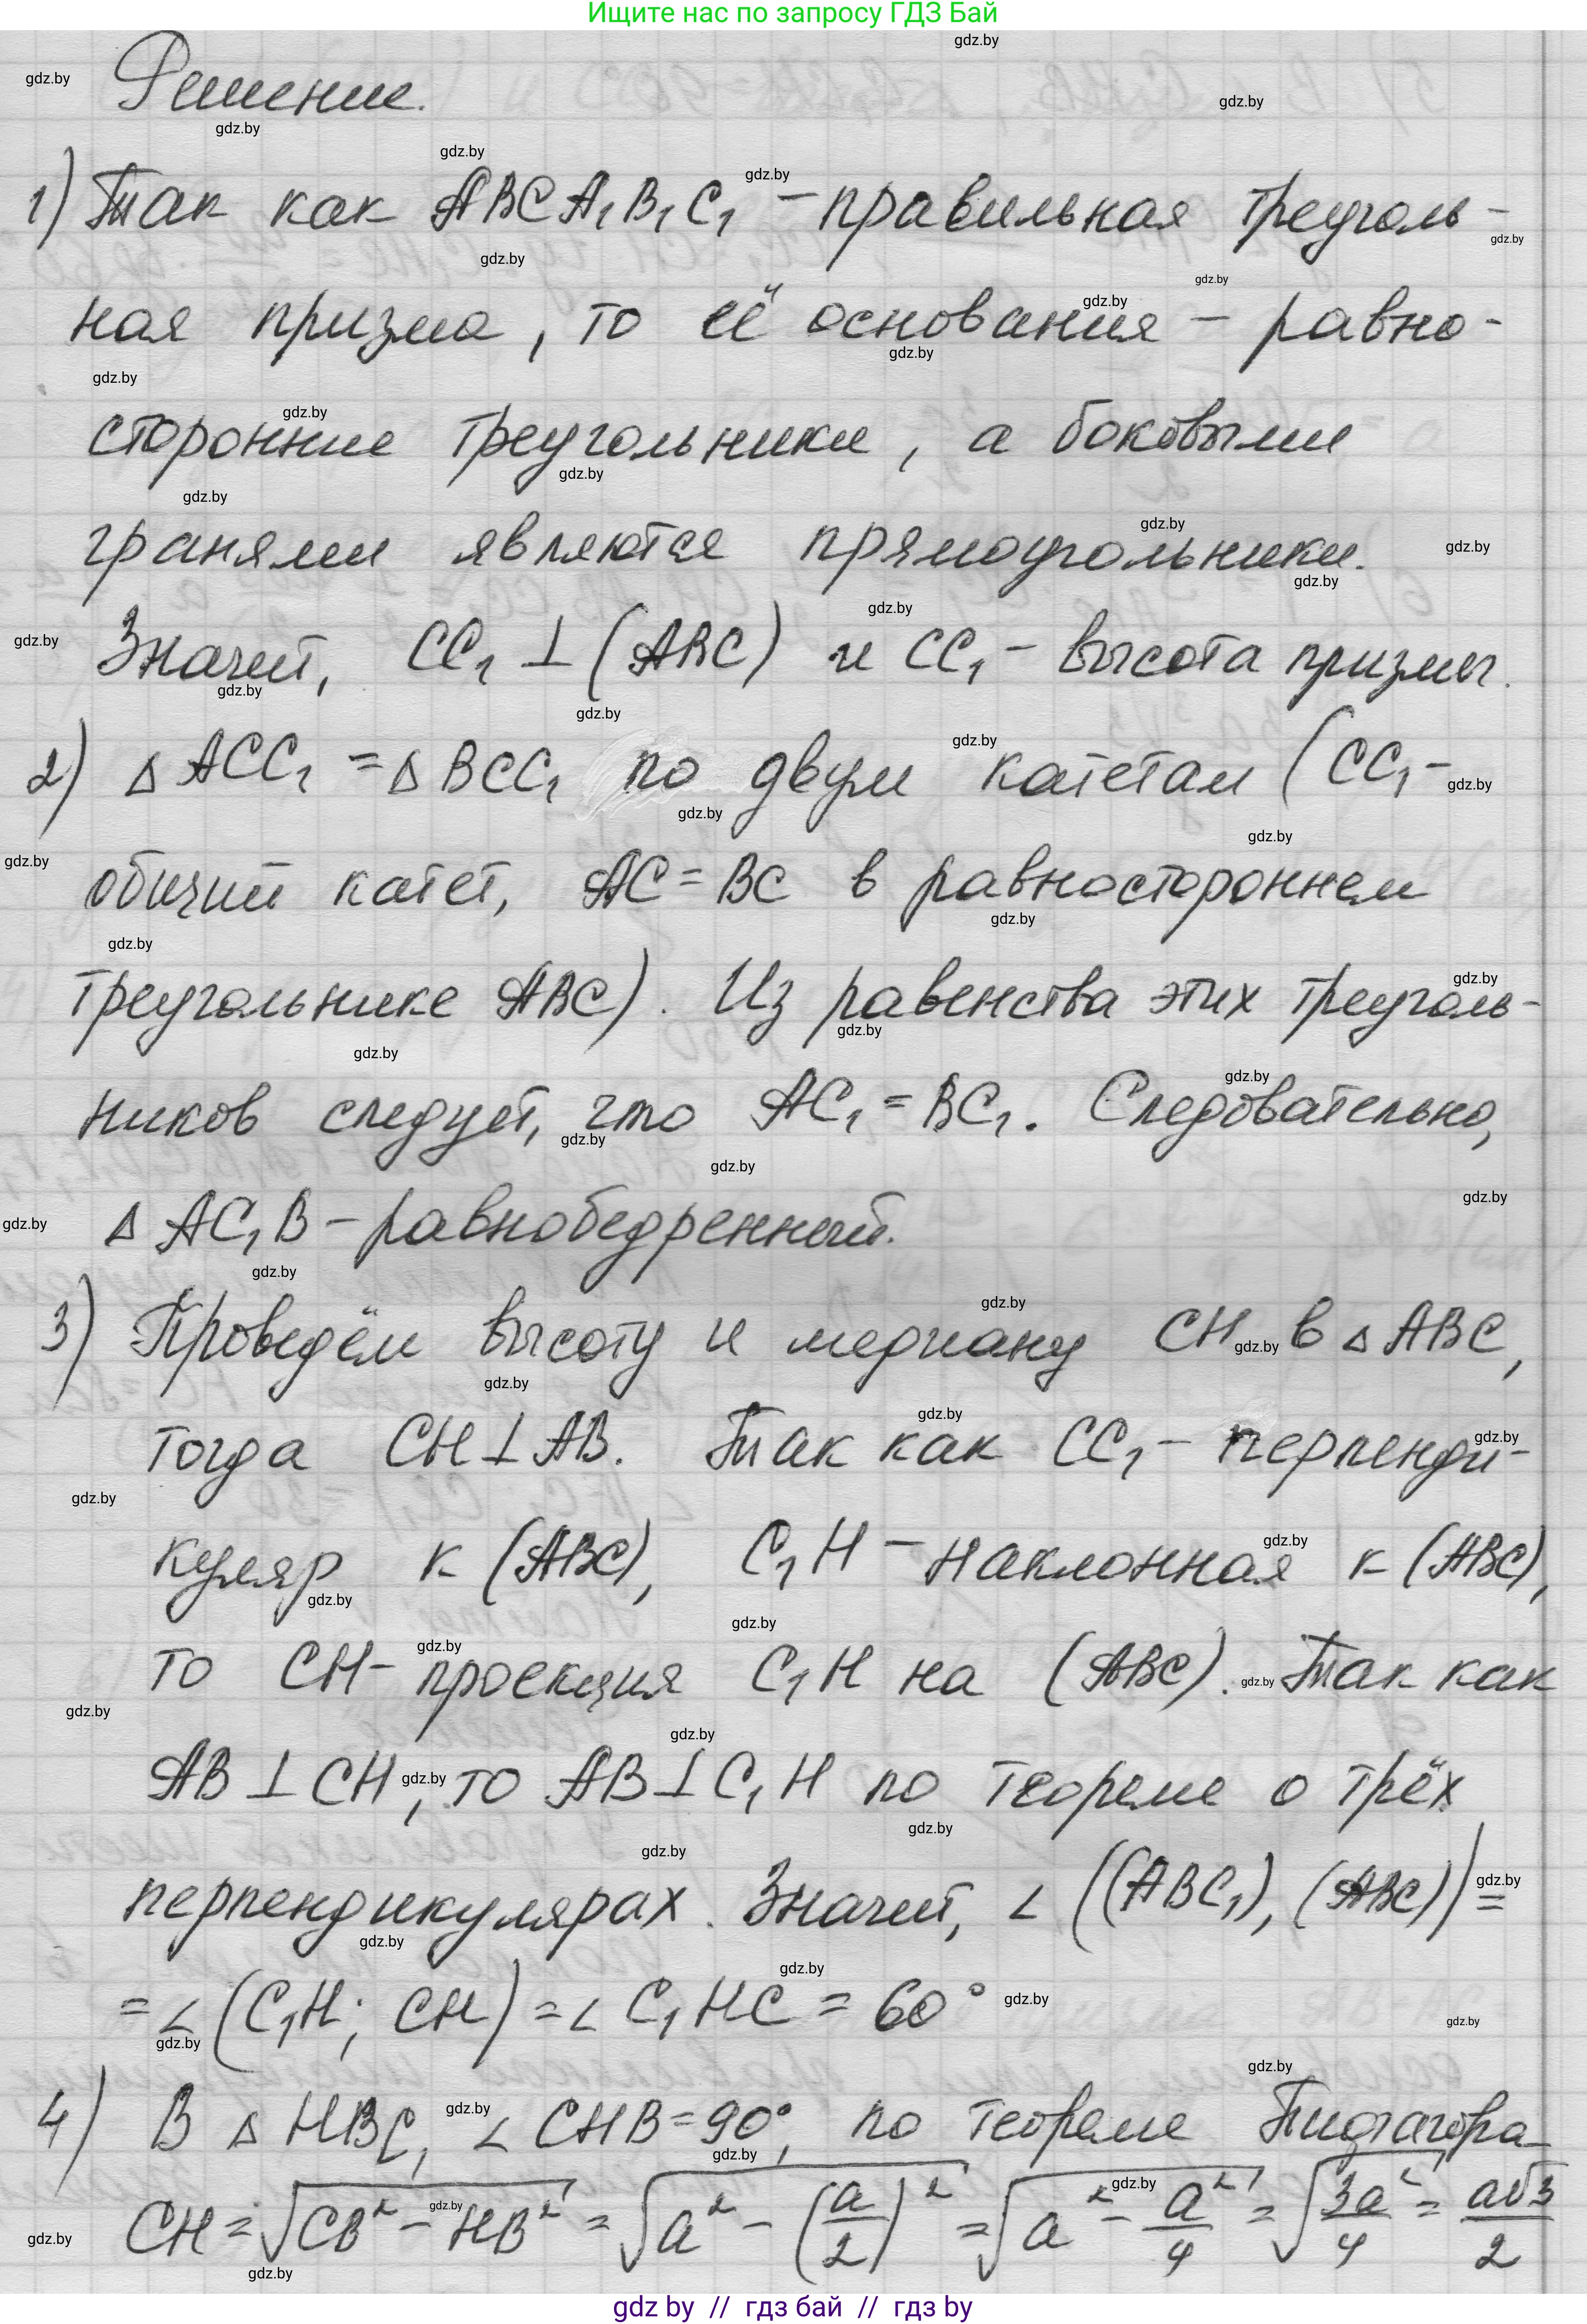 Ищите нас по запросу ГДЗ Бай
Решение.
1) Так как ABCA₁B₁C₁ – правильная треуголь-
ная призма, то её основания – равно-
сторонние треугольники, а боковыми
гранями являются прямоугольники.
Значит, CC₁ ⊥ (ABC) и CC₁ – высота призмы.
2) Δ ACC₁ = Δ BCC₁ по двум катетам (CC₁ –
общий катет, AC = BC в равностороннем
треугольнике ABC). Из равенства этих треуголь-
ников следует, что AC₁ = BC₁. Следовательно,
Δ AC₁B – равнобедренный.
3) Проведём высоту и медиану CH в Δ ABC,
тогда CH ⊥ AB. Так как CC₁ – перпенди-
куляр к (ABC), C₁H – наклонная к (ABC),
то CH – проекция C₁H на (ABC). Так как
AB ⊥ CH, то AB ⊥ C₁H по теореме о трёх
перпендикулярах. Значит, ∠((ABC₁), (ABC)) =
= ∠(C₁H; CH) = ∠C₁HC = 60°
4) В Δ HBC, ∠CHB = 90°, по теореме Пифагора
CH = √(CB² – HB²) = √(a² – (a/2)²) = √(a² – a²/4) = √(3a²/4) = a√3/2
gdz by // гдз бай // гдз by